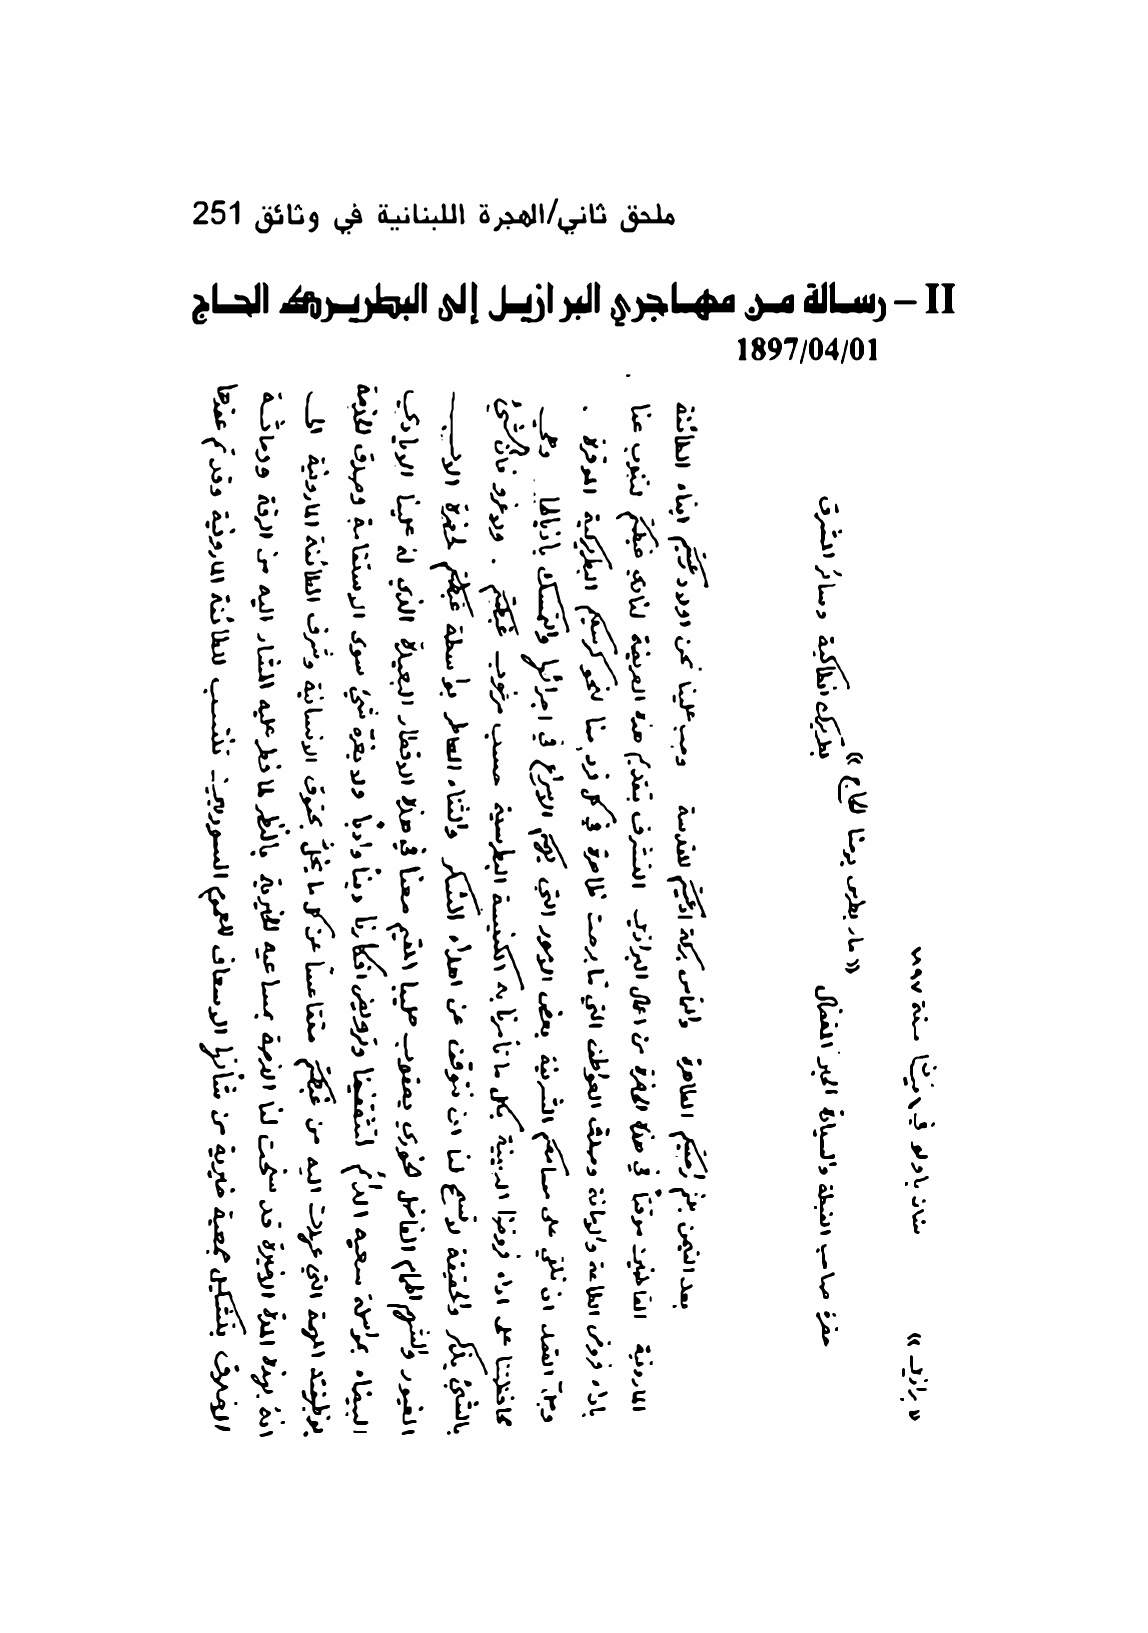 ملحق ثاني/الهجرة اللبنانية في وثائق 251
II – رسالة من مهاجري البرازيل إلى البطريرك الحاج
1897/04/01
« برازيل »
سان باولو في ١ نيسان سنة ١٨٩٧
حضرة صاحب الغبطة والسيادة الحبر المفضال
« مار يوحنا الحاج »
بطريرك انطاكية وسائر المشرق
بعد التيمن بلثم ارديتكم الطاهرة والتماس بركة ادعيتكم المقدسة وجب علينا نحن اولاد غبطتكم ابناء الطائفة
المارونية القاطنين موقتاً في هذه من اعمال البرازيل التشرف بتقديم هذه العريضة لنادي غبطتكم لتنوب عنا
باداء فروض الطاعة والامانة وصدق العواطف التي ما برحت ظاهرة في كل فرد منا نحو كرسيكم البطريركية الموقرة .
القصد ان نلقي على مسامعكم الشريفة بعض الامور التي يهمكم الاسراع في اجرائها والتمسك باذيالها وهي
محافظتنا على اداء فروضنا الدينية بكل ما تأمرنا به الكنيسة البطرسية حسب مرغوب غبطتكم . ولا غرو فان
بالشيء يذكر والحقيقة لا تسمح لنا ان نتوقف عن اهداء الشكر والثناء العاطر بواسطة غبطتكم لحضرة الاب
الغيور والشهم الهمام الفاضل الخوري يعقوب صليبا المقيم معنا في هذه الاقطار البعيدة الذي له علينا الايادي
البيضاء بمواصلة سعيه الدائم لتثقيفنا وترويض افكارنا دينياً وادبياً ولا يغره شيء سوى الاستقامة وصدق الخدمة
بوظيفته المهمة التي عهدت اليه من غبطتكم متقاعساً عن كل ما يخل بحقوق الانسانية وشرف الطائفة المارونية الى
انه بهذه المدة الاخيرة قد سنحت لنا الفرصة بمساعيه الخيرية بالنظر لما فطر عليه المشار اليه من الرقة ودماثة
الاخلاق بتشكيل جمعية خيرية من شأنها الاسعاف لعموم السوريين تنتسب للطائفة المارونية وقد تم عقدها